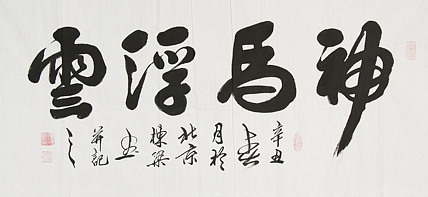 神馬浮雲
辛丑
春
月於
北京
棟梁
并記
之